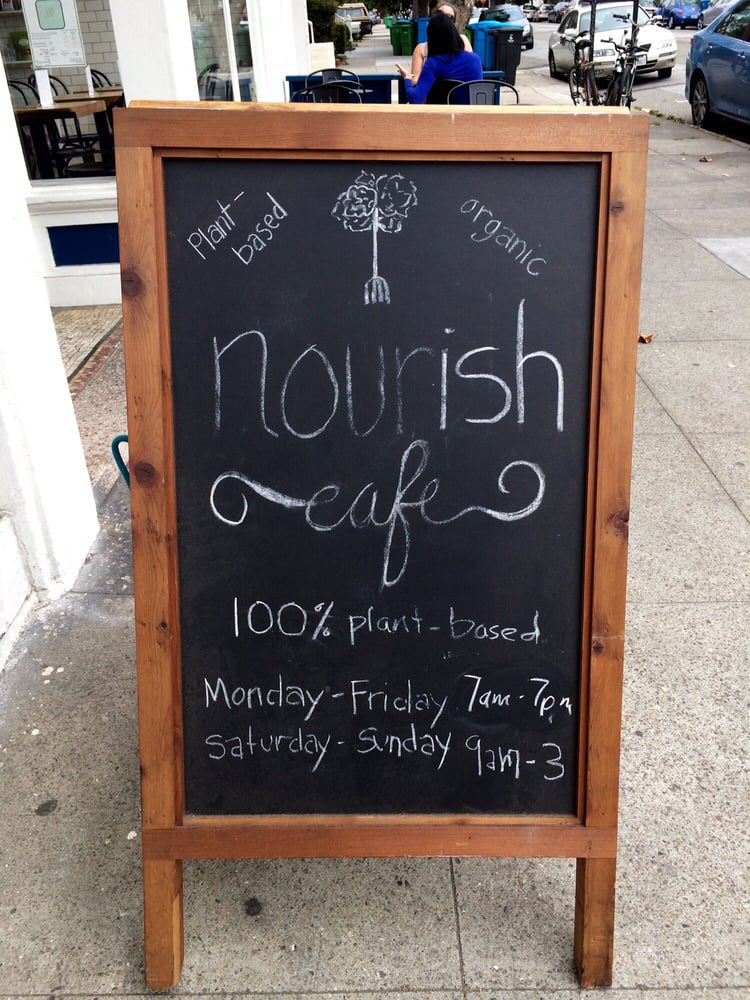 Plant-
based
organic
nourish
cafe
100% plant-based
Monday-Friday 7am-7pm
Saturday-Sunday 9am-3